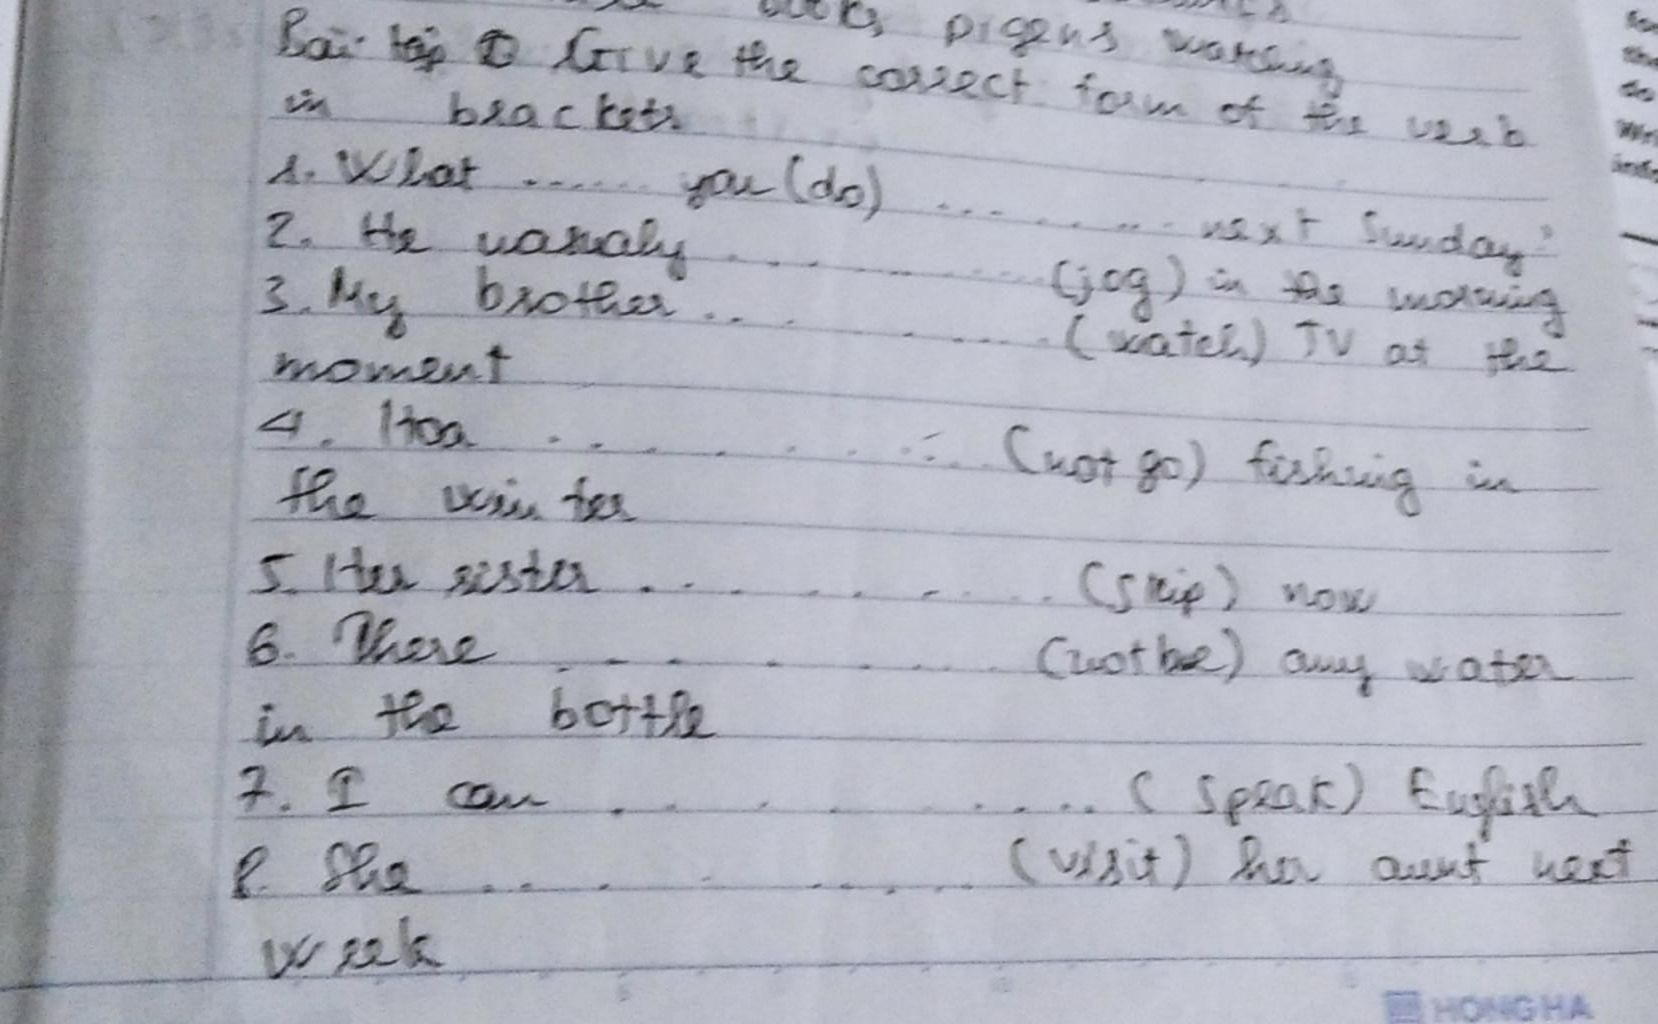 pigens watching
Bài tập Give the correct form of the verb
in brackets
1. What ...... you (do) ............ next Sunday?
2. He usualy .............. (jog) in the morning
3. My brother .............. (watch) TV at the
moment
4. Hoa .............. (not go) fishing in
the winter
5. Her sister .............. (skip) now
6. There .............. (not be) any water
in the bottle
7. I can .............. (speak) English
8. She .............. (visit) her aunt next
week
HONG HA